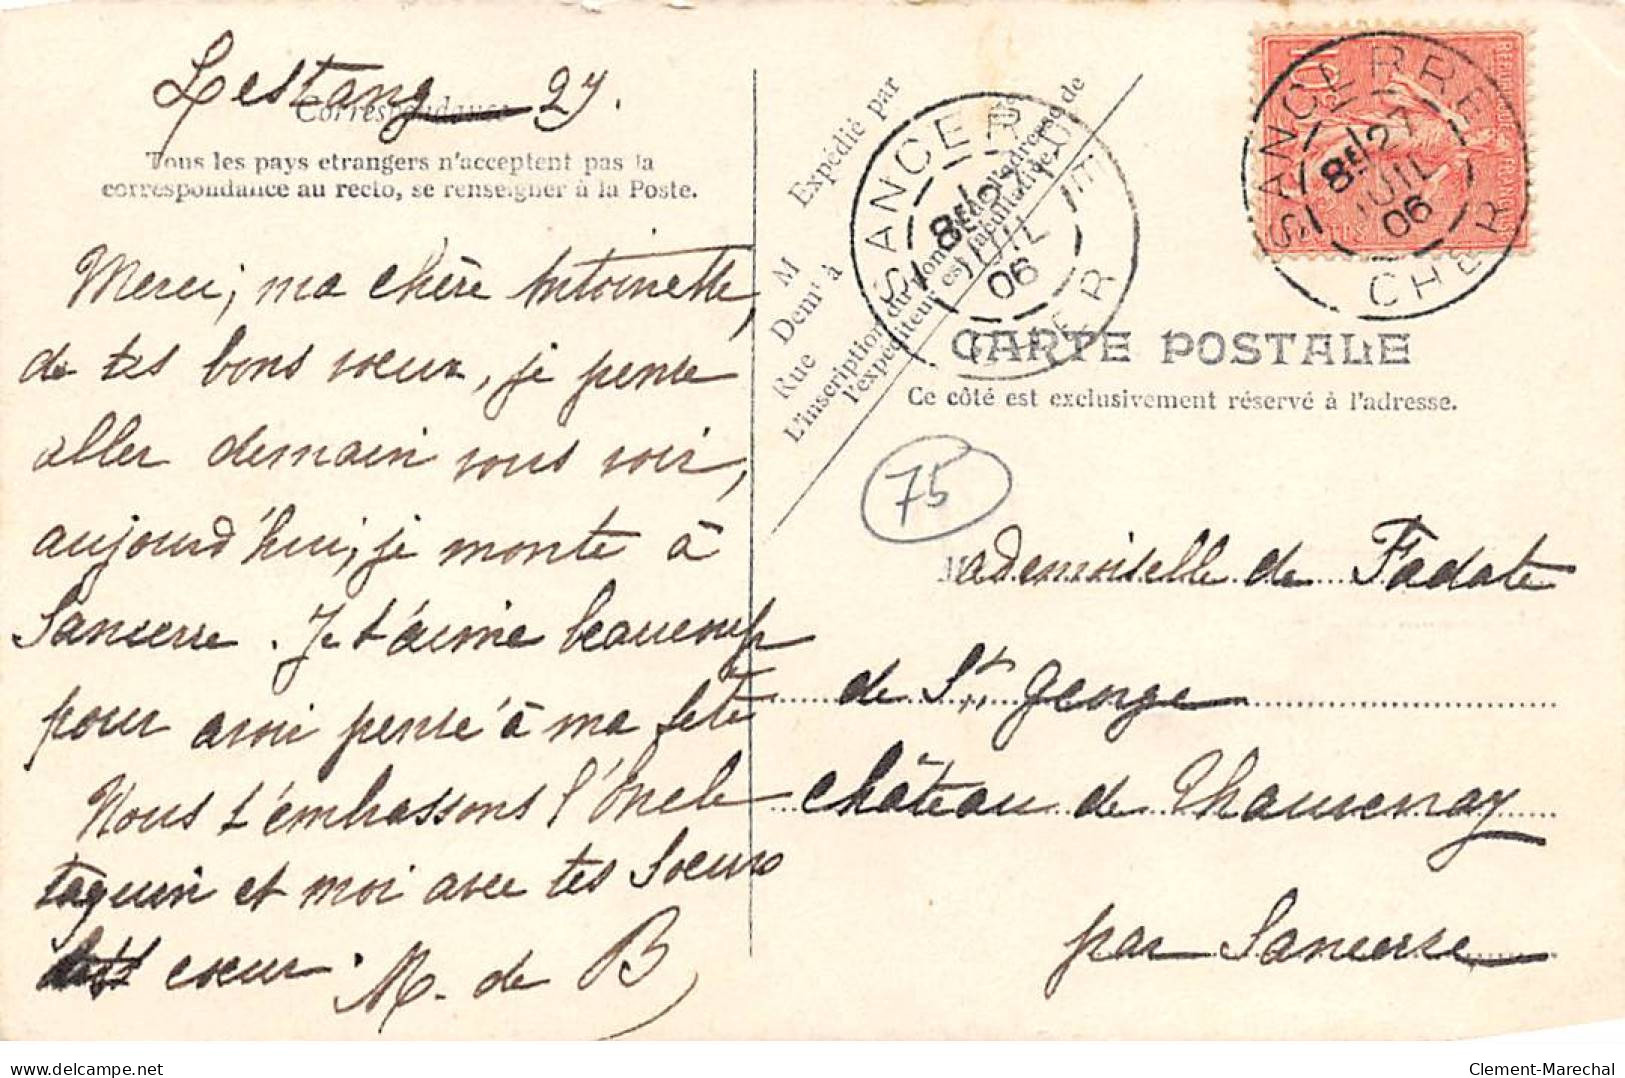 Lestang 27.
Correspondance
Tous les pays etrangers n'acceptent pas la
correspondance au recto, se renseigner à la Poste.
Merci, ma chère Antoinette,
de tes bons vœux, je pense
aller demain vous voir,
aujourd'hui, je monte à
Sancerre. Je t'aime beaucoup
pour avoir pensé à ma fête
Nous t'embrassons l'Oncle
taquin et moi avec tes Sœurs
cœur. M. de B
Expédié par
M
Demt à
Rue
L'inscription du nom et de l'adresse de
l'expéditeur est facultative.
SANCERRE
8E 27
JUIL
06
CHER
REPUBLIQUE FRANÇAISE
10
SANCERRE
8E 27
JUIL
06
CHER
CARTE POSTALE
Ce côté est exclusivement réservé à l'adresse.
75
Mademoiselle de Fadate
de St George
Château de Thauvenay
par Sancerre
delcampe.net
Clement-Marechal